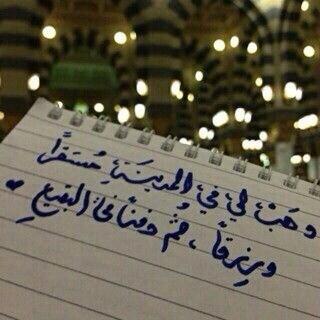 وهب لي في المدينة مستقراً
ورزقاً، ثم دفناً في البقيع ♥